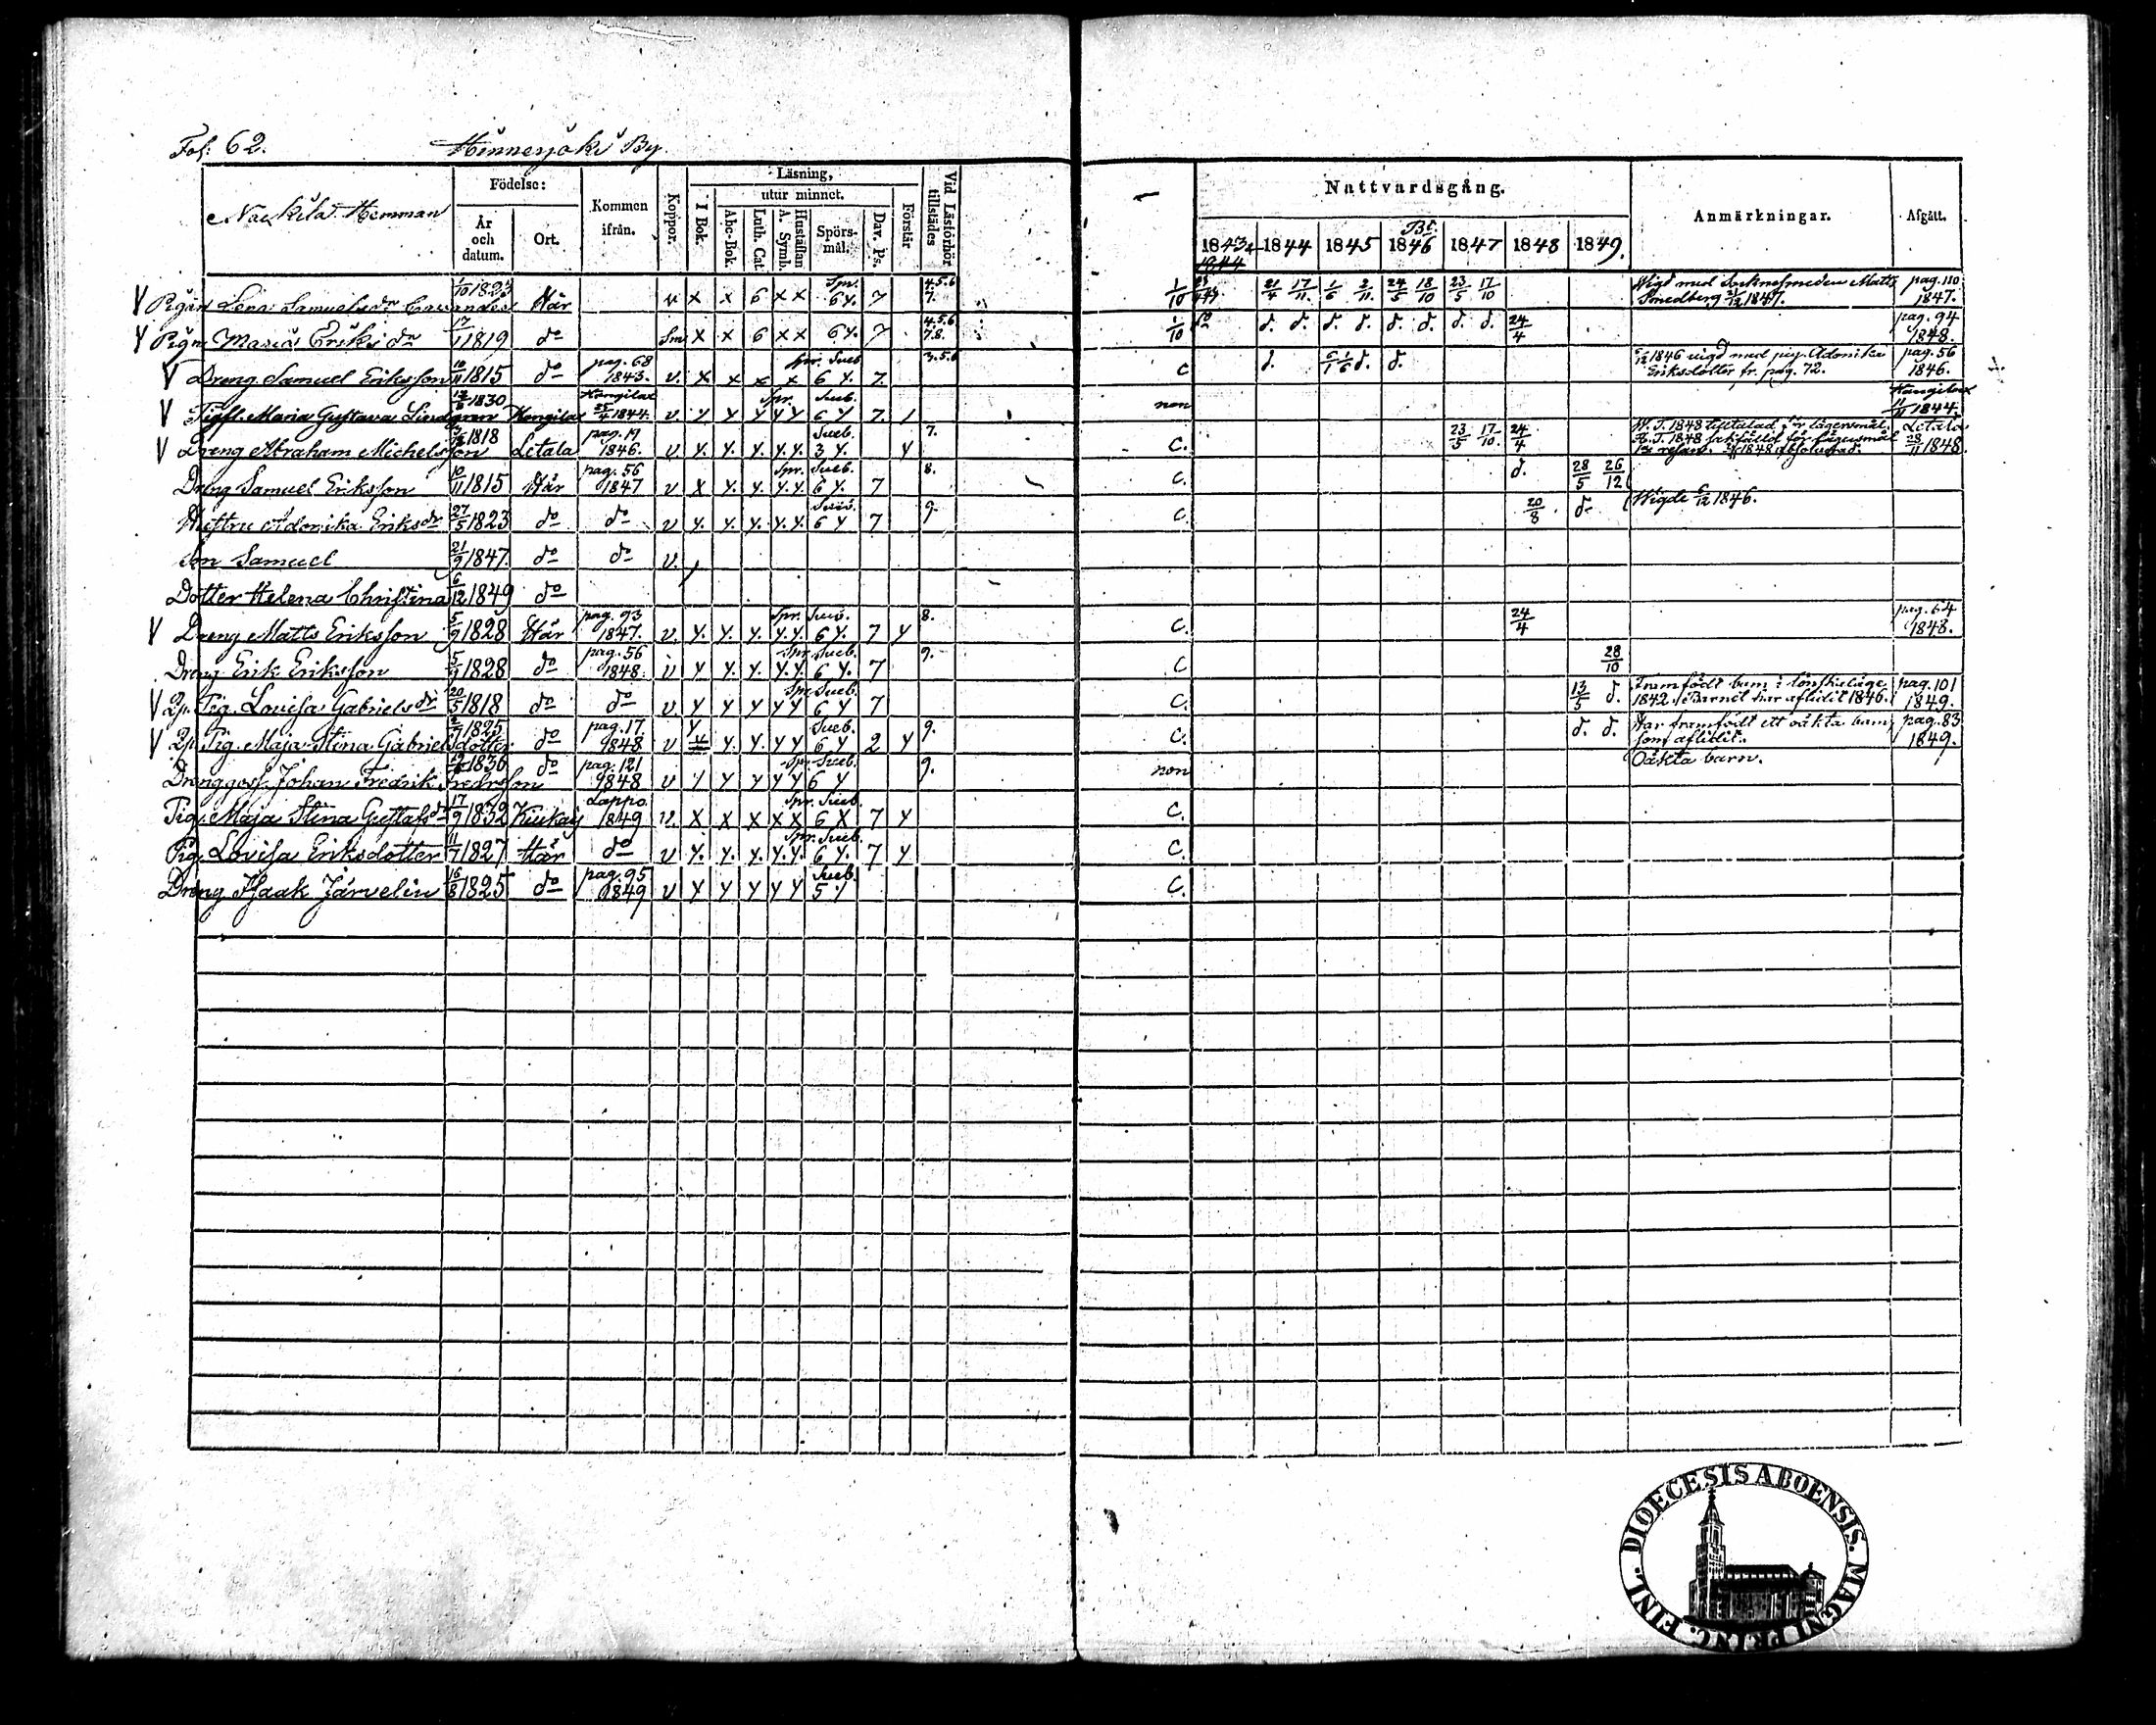 Fol: 62. Hinnerjoki By.
Födelse: Läsning, Vid Läsförhör tillstädes Nattvardsgång.
Hemman År och datum. Ort. Kommen ifrån. Koppor. I Bok. utur minnet. Förstår Anmärkningar. Afgått.
Abc-Bok. Luth. Cat. Hustaflan A. Symb. Spörs-mål. Dav. Ps.
1843 1844 1845 1846 1847 1848 1849.
1844
V Pigan Lena Samuelsdr 1/10 1823 Här v x x 6 x x Spr. 6 y. 7 4.5.6 7. 1/10 21/4 17/11. 1/6 2/11. 24/5 18/10 23/5 17/10 Wigd med Socknesmeden Matts pag. 110
Smedberg 21/12 1847. 1847.
V Pign Maria Eriksdr 17/1 1819 do Sm x x 6 x x 6 y. 7 4.5.6 7.8. 1/10 do d. d. d. d. d. d. d. d. 24/4 pag. 94
1848.
V Dreng Samuel Eriksson 10/11 1815 do pag. 68 1843. v. x x x x Spr. Sueb 6 y. 7. 3.5.6 C d. 6/1 1/6 d. d. 6/12 1846 vigd med pig. Adonika pag. 56
Eriksdotter fr. pag. 72. 1846.
V Pigfl. Maria Gustava Lindgren 1830 Hongilax Hongilax 25/4 1844. v. y y y y y Spr. Sueb. 6 y 7. 1 non Hongilax
11/11 1844.
V Dreng Abraham Michelsson 1818 Letala pag. 19 1846. v y. y. y. y. y. Sueb. 3 y. y 7. C. 23/5 17/10. 24/4 W. T. 1848 tilltalad för lägersmål. Letala
H. T. 1848 sakfälld för lägersmål 28/11 1848.
1848 absolverad.
Dreng Samuel Eriksson 10/11 1815 Här pag. 56 1847 v x y. y. y. y. Spr. Sueb. 6 y. 7 8. C. d. 28/5 26/12
Hustru Adonika Eriksdr 27/5 1823 do do v y. y. y. y. y. 6 y 7 9. C. 20/8. d. Wigde 6/12 1846.
Son Samuel 21/9 1847. do do v.
Dotter Helena Christina 6/12 1849 do
V Dreng Matts Eriksson 5/9 1828 Här pag. 93 1847. v. y. y. y. y. y. Spr. Sueb. 6 y. 7 y 8. C. 24/4 pag. 64
1848.
Dreng Erik Eriksson 5/9 1828 do pag. 56 1848. v y y y. y. y. Spr. Sueb. 6 y. 7 9. C 28/10
V Pig. Lovisa Gabrielsdr 20/5 1818 do do v y y y y y Spr Sueb. 6 y 7 C. 13/5 d. Framfödt barn i lönskaläge pag. 101
1842. Barnet har aflidit 1846. 1849.
V Pig. Maja Stina Gabrielsdotter 1825 do pag. 17. 1848 v y y. y. y y Sueb. 6 y 2 y 9. C. d. d. Har framfödt ett oäkta barn pag. 83
som aflidit. 1849.
Drenggoss. Johan Fredrik 1836 do pag. 121 1848 v y y y y y Spr. Sueb. 6 y 9. non Oäkta barn.
Pig. Maja Stina Gustafsdr 17/9 1832 Kiukais Lappo 1849 v. x x x x x Spr. Sueb. 6 x 7 y C.
Pig. Lovisa Eriksdotter 11/7 1827 Här do v y. y. y. y. y. Spr. Sueb. 6 y. 7 y C.
Dreng Isaak Järvelin 16/8 1825 do pag. 95 1849 v y y y y y Sueb. 5 y C.
DIOECESIS ABOENSIS. MAGNI PRINC. FINL.